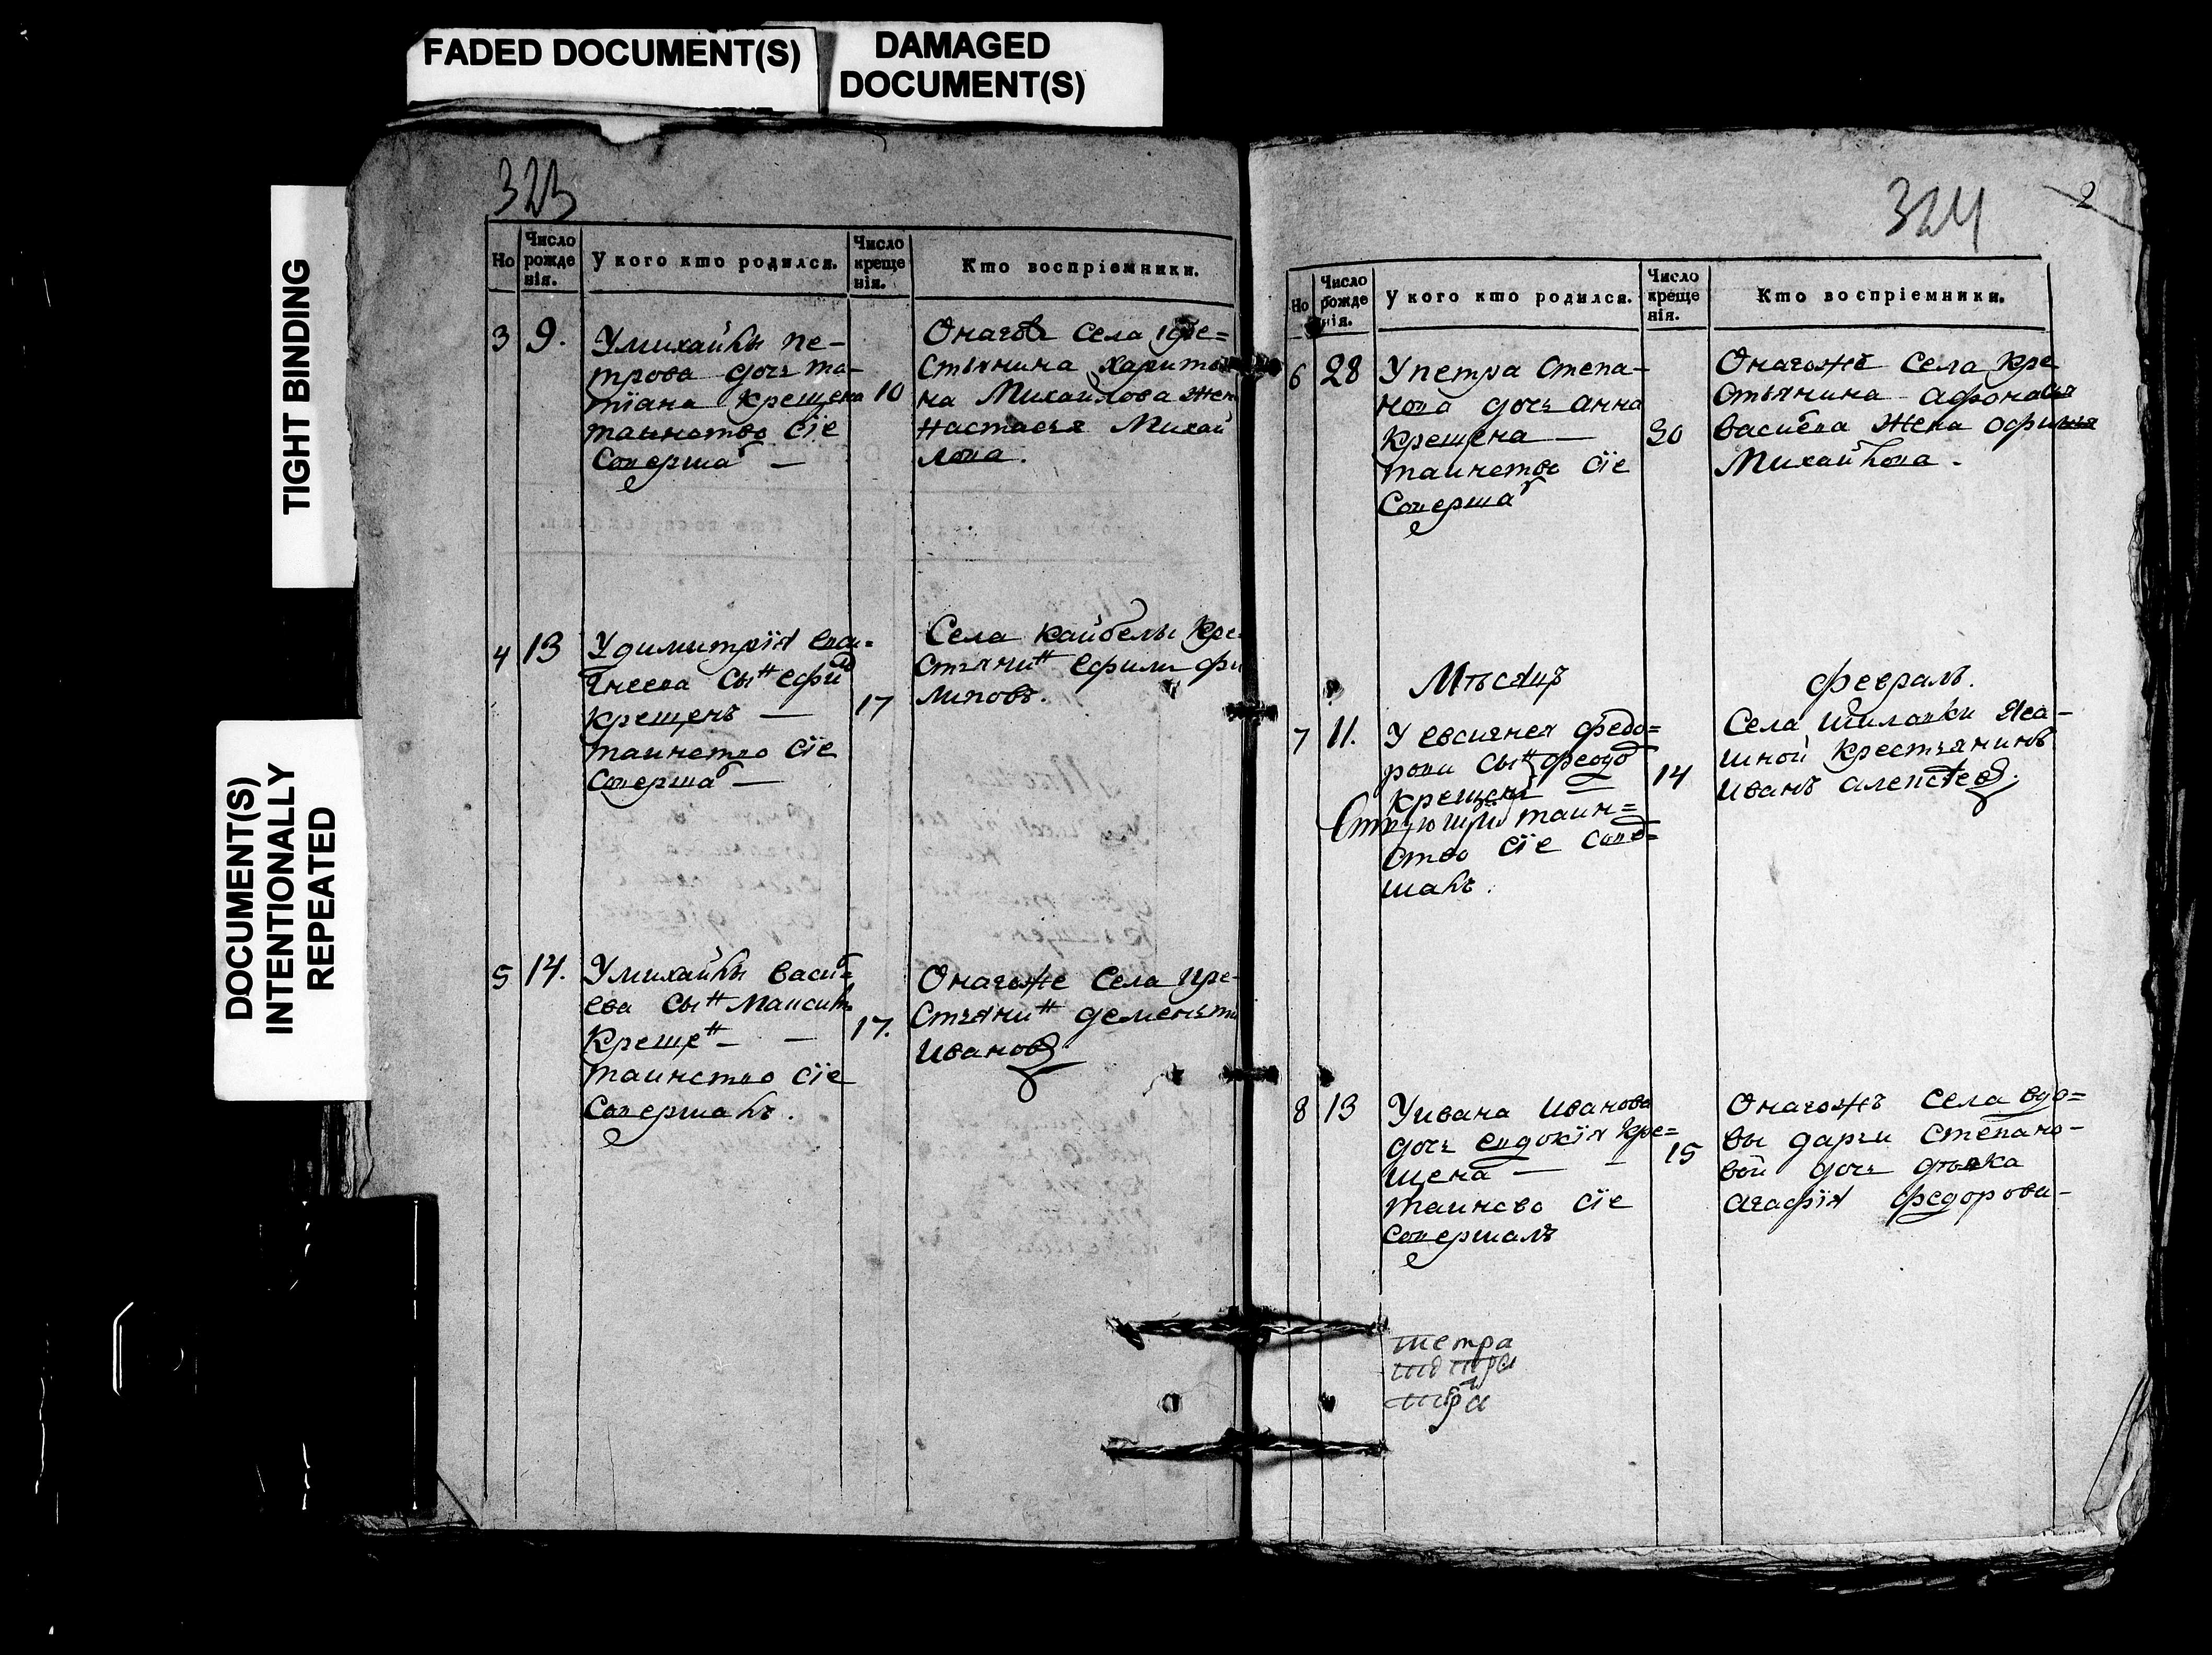 FADED DOCUMENT(S)
DAMAGED
DOCUMENT(S)
TIGHT BINDING
DOCUMENT(S)
INTENTIONALLY
REPEATED
323
Но
Число
рожде
нія.
У кого кто родился.
Число
креще
нія.
Кто воспріемники.
3 9.
Умихайлы пе-
трова дочь та-
тїана крещена
таинство сїе
Соверша л —
10
Онагоже Села кре=
стьянина харито
на Михайлова жен
Настасья Михай
лова.
4 13
Удимитрїя евси=
гнеева сын ефим
крещенъ —
таинство сїе
Совершал —
17
Села кайбелы кре
стьянин ефимъ фи
липовъ.
5 14.
Умихайлы васил=
ева сын Максимъ
Крещен — —
таинство сїе
Совершалъ.
17.
Онагоже Села кре-
стьянин дементи
Ивановъ
324
2
Но
Число
рожде
нія.
У кого кто родился.
Число
креще
нія.
Кто воспріемники.
6 28
Упетра степа-
нова дочь анна
крещена —
таинство сїе
Совершал
30
Онагожъ Села кре
стьянина афонасья
васильева жена
Михайлова.
Мѣсяцъ
февраль.
7 11.
У евсигнея федо=
рова сын феодо
крещенъ —
таин=
ство сїе сове=
шалъ.
14
Села шиловки яса-
шной крестьянинъ
Иванъ алексѣевъ.
8 13
Уивана Иванова
дочь евдокїя кре=
щена — —
таинсво сїе
совершалъ
15
Онагожъ села вдо=
вы дарьи степано-
вой дочь дѣвка
агафїя федорова-